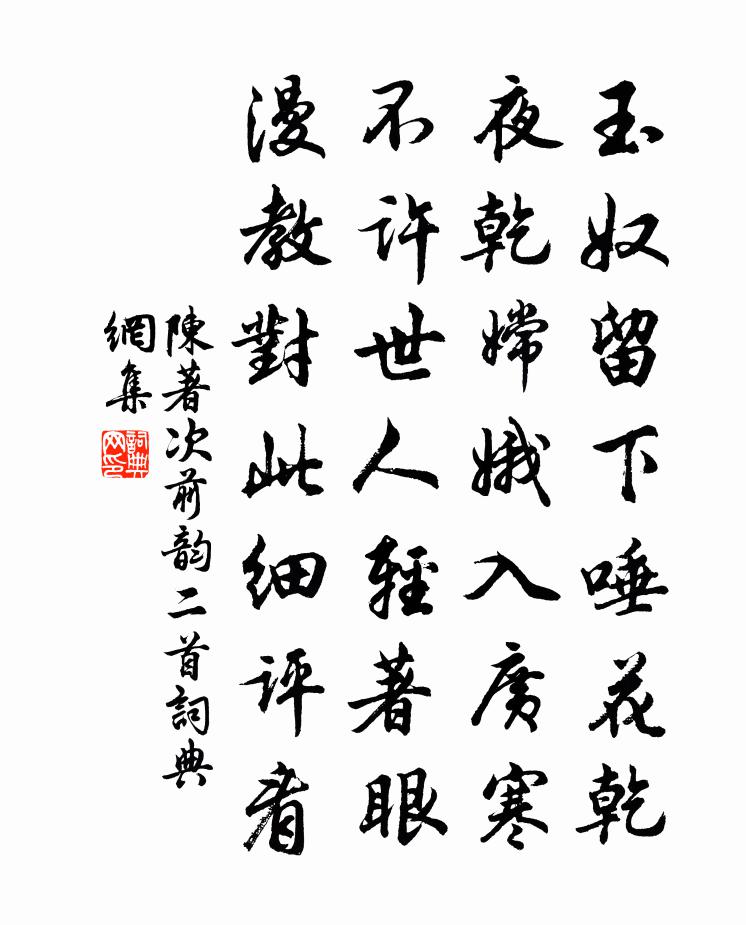 玉奴留下唾花乾
夜乾嫦娥入廣寒
不許世人輕著眼
漫教對此細評看
陳著次前韵二首詞典
網集
詞典網印